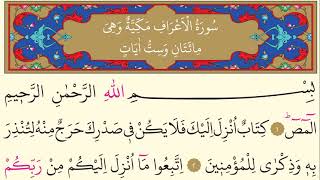 سُورَةُ الْاَعْرَافِ مَكِّيَّةٌ وَهِيَ
مِائَتَانِ وَسِتُّ اٰيَاتٍ
بِسْمِ اللهِ الرَّحْمٰنِ الرَّحِيمِ
الٓمٓصٓ ﴿١﴾ كِتَابٌ اُنْزِلَ اِلَيْكَ فَلَا يَكُنْ فِي صَدْرِكَ حَرَجٌ مِنْهُ لِتُنْذِرَ
بِهِ وَذِكْرٰى لِلْمُؤْمِنِينَ ﴿٢﴾ اِتَّبِعُوا مَٓا اُنْزِلَ اِلَيْكُمْ مِنْ رَبِّكُمْ